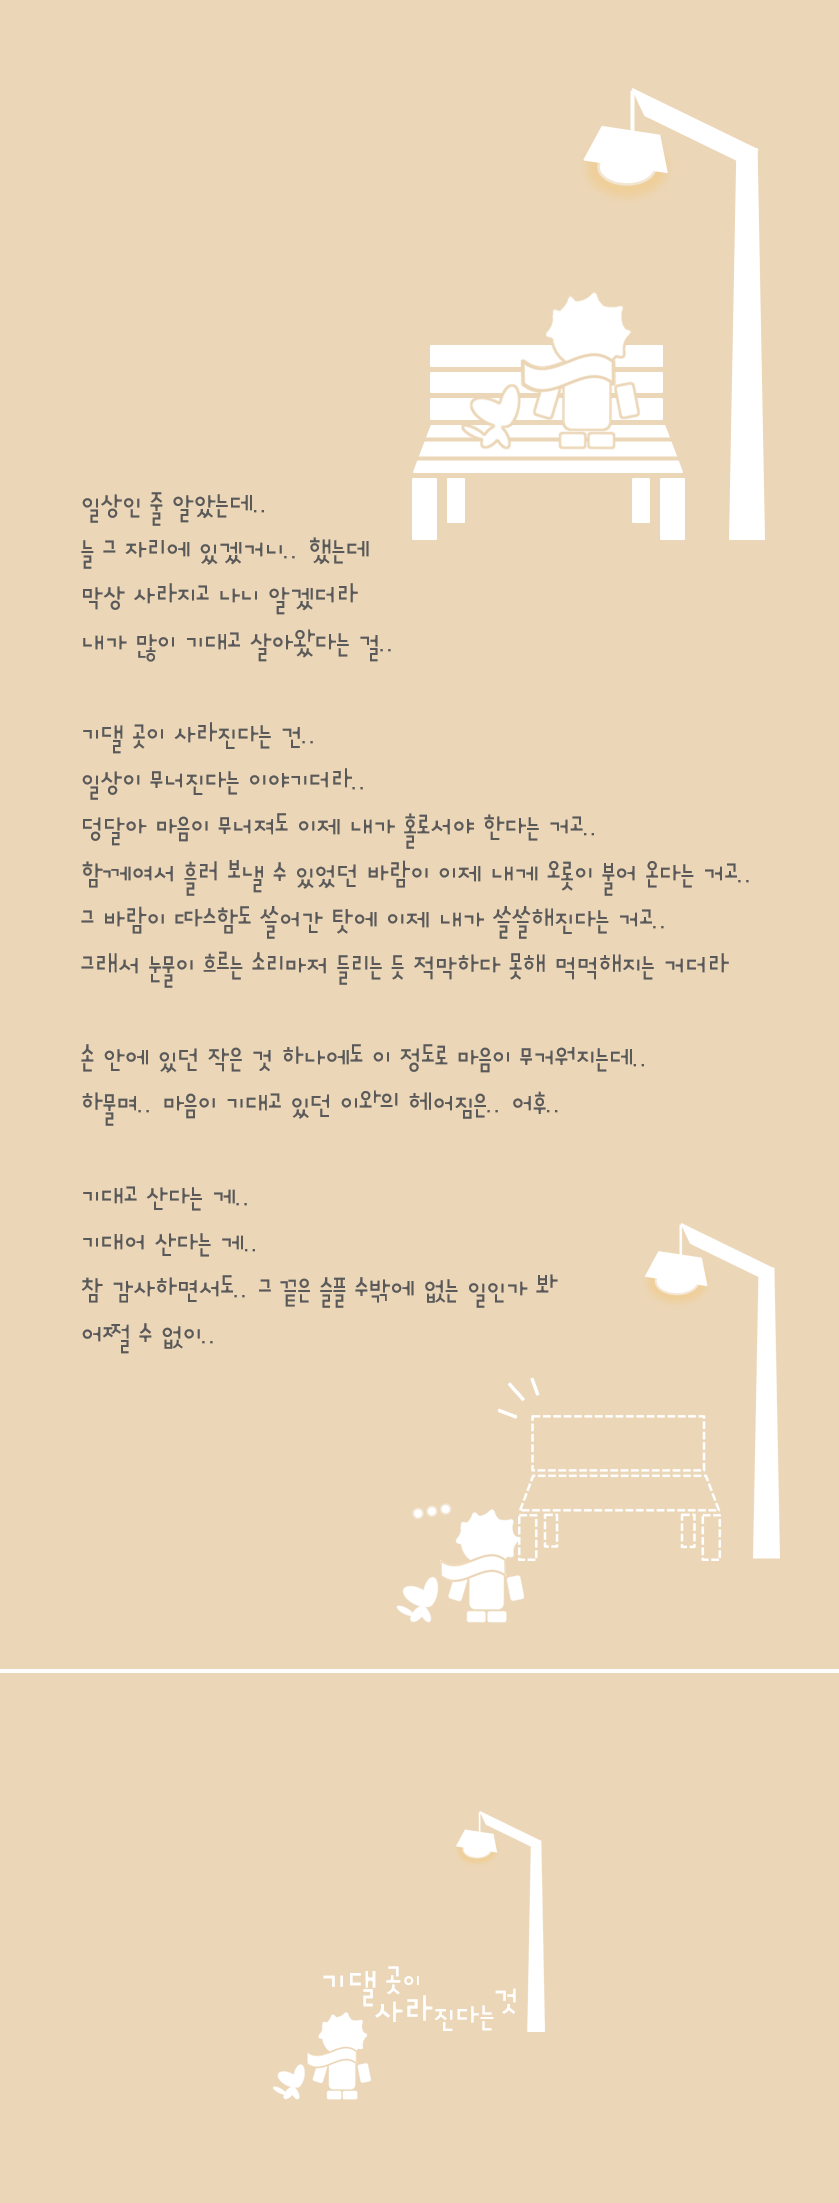 일상인 줄 알았는데..
늘 그 자리에 있겠거니.. 했는데
막상 사라지고 나니 알겠더라
내가 많이 기대고 살아왔다는 걸..
기댈 곳이 사라진다는 건..
일상이 무너진다는 이야기더라..
덩달아 마음이 무너져도 이제 내가 홀로서야 한다는 거고..
함께여서 흘러 보낼 수 있었던 바람이 이제 내게 오롯이 불어 온다는 거고..
그 바람이 따스함도 쓸어간 탓에 이제 내가 쓸쓸해진다는 거고..
그래서 눈물이 흐르는 소리마저 들리는 듯 적막하다 못해 먹먹해지는 거더라
손 안에 있던 작은 것 하나에도 이 정도로 마음이 무거워지는데..
하물며.. 마음이 기대고 있던 이와의 헤어짐은.. 어후..
기대고 산다는 게..
기대어 산다는 게..
참 감사하면서도.. 그 끝은 슬플 수밖에 없는 일인가 봐
어쩔 수 없이..
기댈 곳이
사라진다는 것